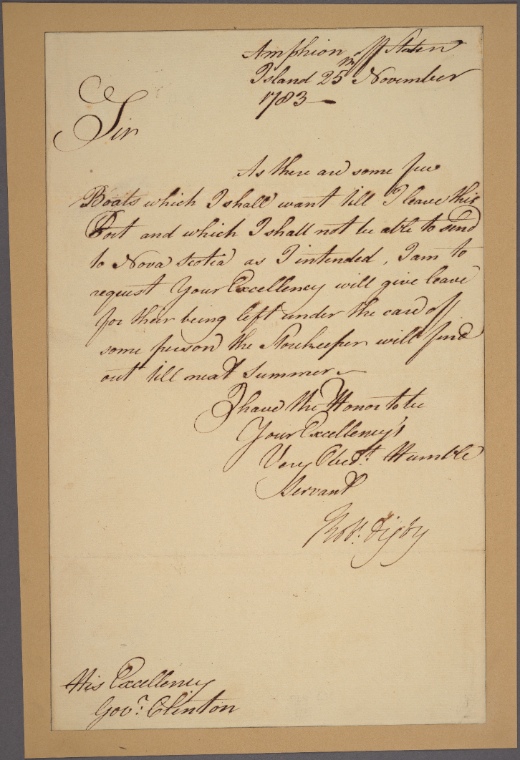 Amphion off Staten
Island 25th November
1783
Sir
As there are some few
Boats which I shall want till I leave this
Port and which I shall not be able to send
to Nova Scotia as I intended, I am to
request Your Excellency will give leave
for their being left under the care of
some person the Storekeeper will find
out till next Summer
I have the Honor to be
Your Excellency's
Very Obedt. Humble
Servant
Robt. Digby
His Excellency
Govr. Clinton